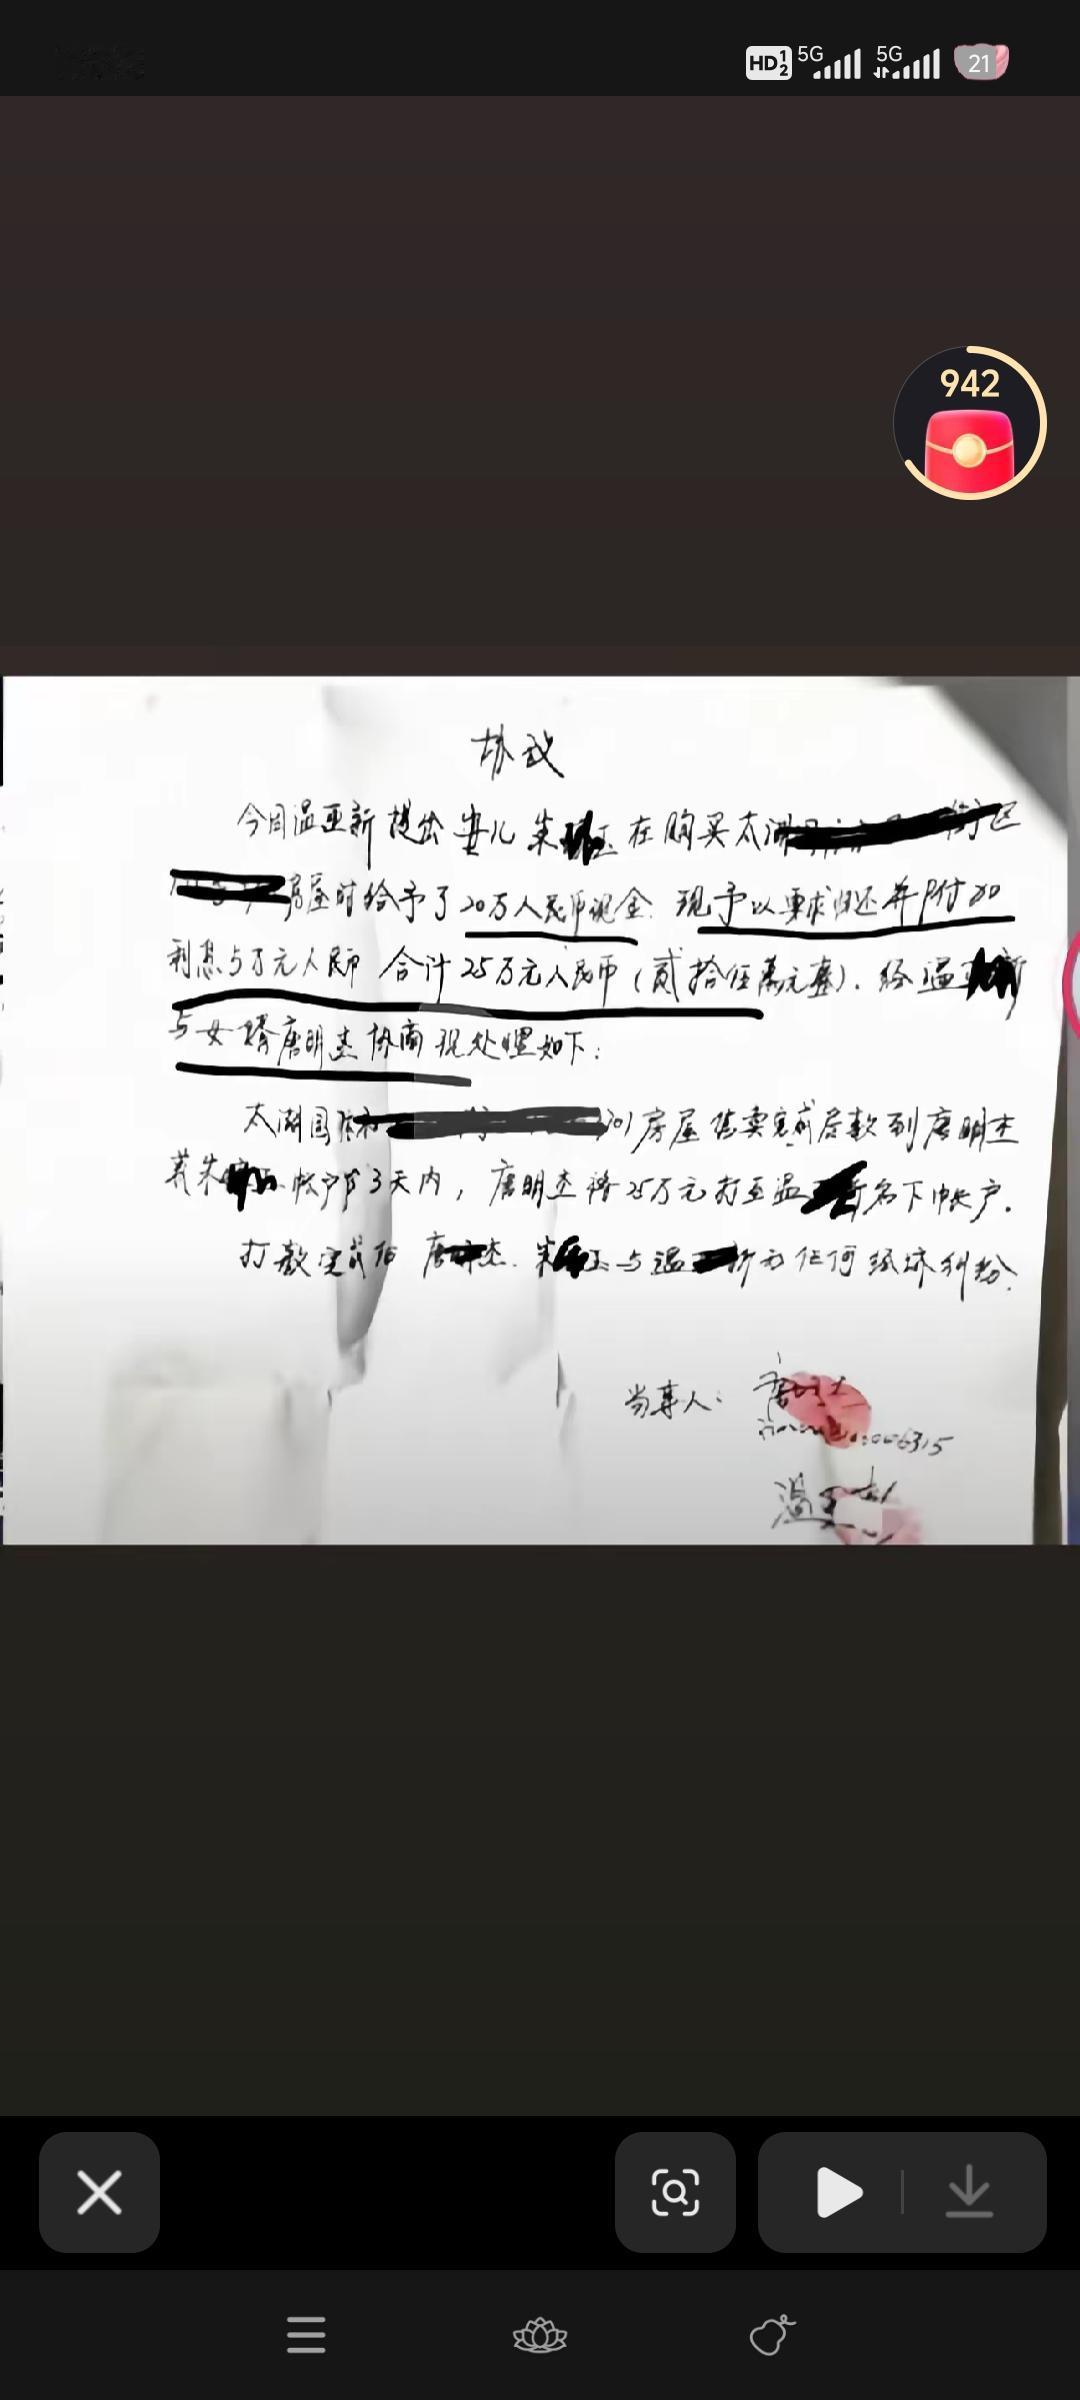 HD 1 2 5G 5G 21
942
协议
今日温亚新提出女儿朱 玉在购买太湖 街区
房屋时给予了20万人民币现金.现予以要求归还并附加
利息5万元人民币 合计25万元人民币(贰拾伍萬元整).经温 新
与女婿唐明杰协商现处理如下:
太湖国 301房屋售卖完成后款到唐明杰
或朱 帐户3天内,唐明杰将25万元打至温 新名下帐户.
打款完成后 唐 杰.朱 玉与温 新无任何经济纠纷.
当事人: 唐
006315
温